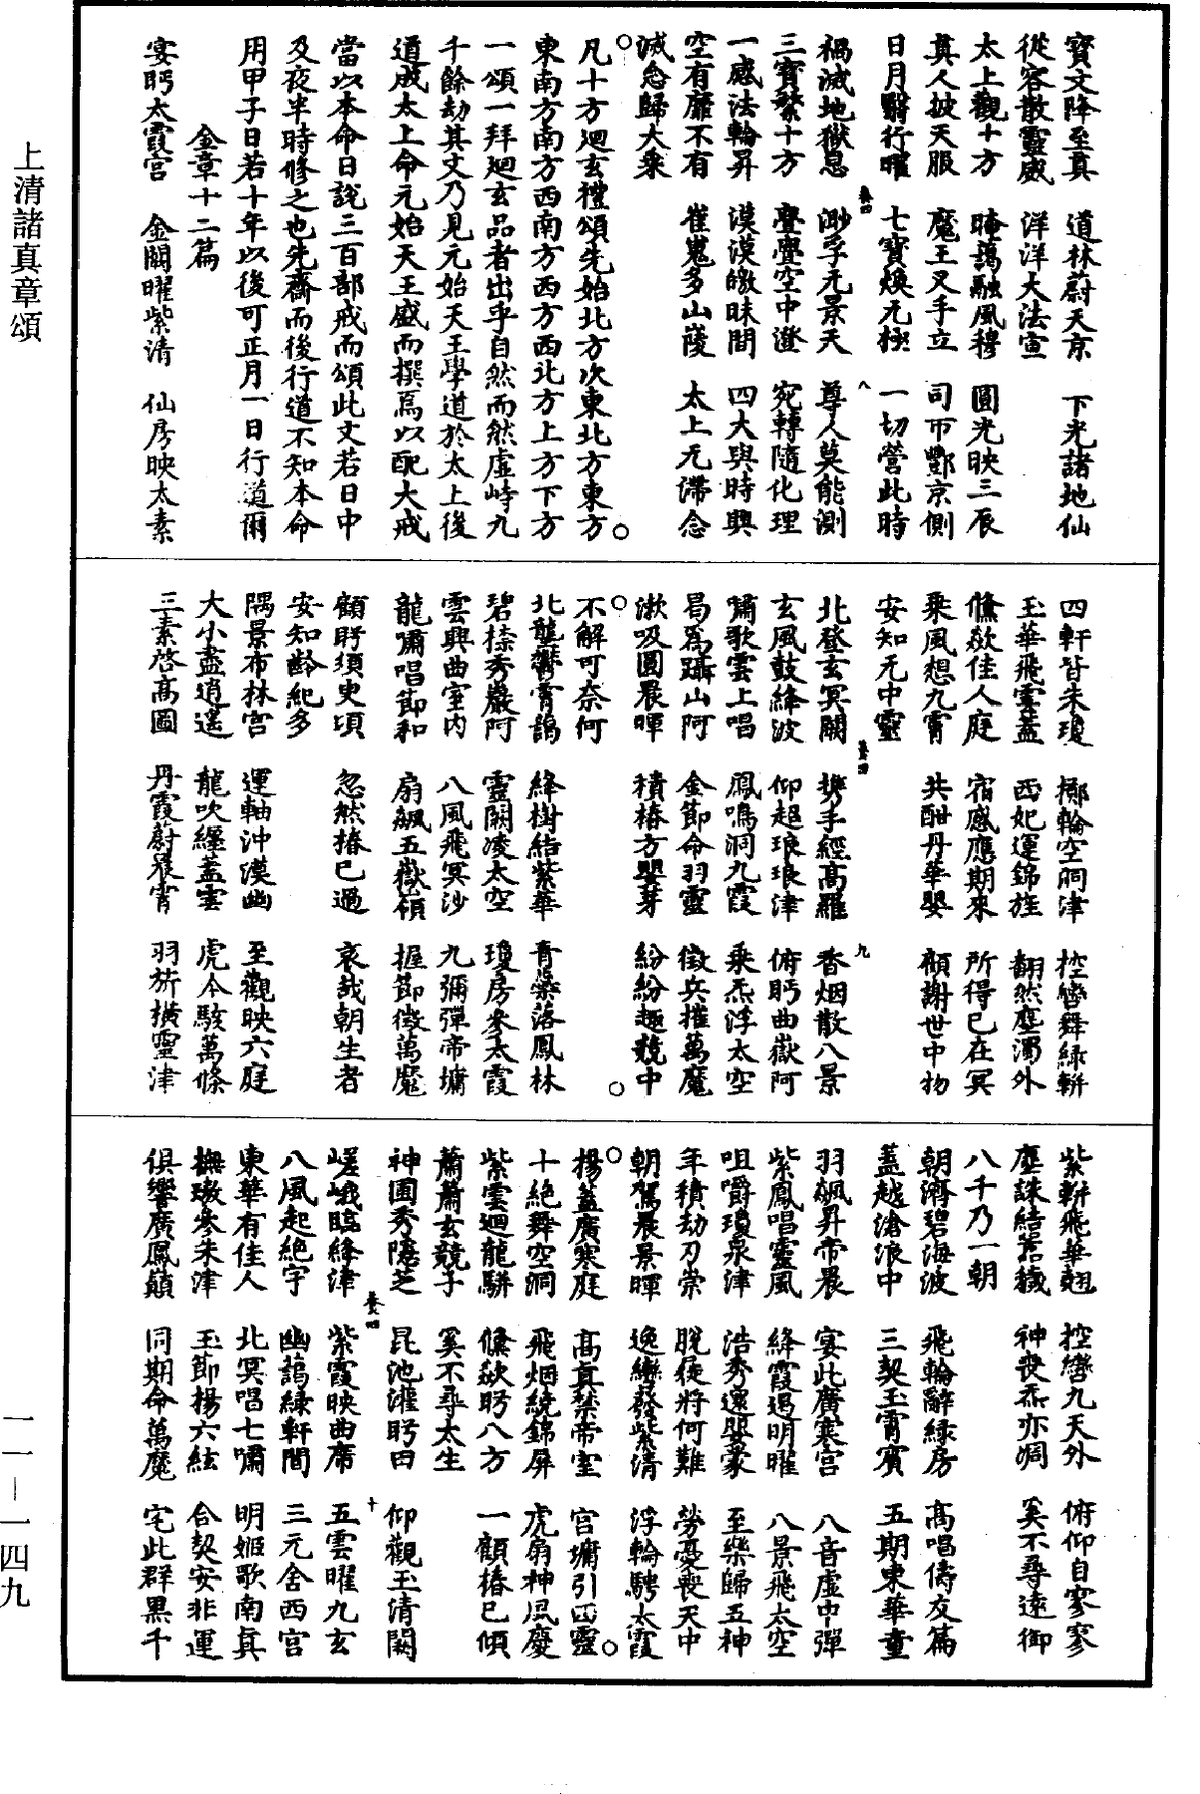 上清諸真章頌
一一—一四九
寶文降至真　道林蔚天京　下光諸地仙
從容散靈威　洋洋大法宣
太上觀十方　晻藹融風穆　圓光映三辰
真人披天服　魔王叉手立　司帀酆京側
日月翳行曜　七寶煥无極　一切營此時
養四　八
禍滅地獄息　渺孚元景天　尊人莫能測
三寶繁十方　疊疊空中澄　宛轉隨化理
一感法輪昇　漠漠皦昧間　四大與時興
空有靡不有　崔嵬多山㥄　太上无滯念
滅念歸大乘
凡十方廻玄禮頌先始北方次東北方東方
東南方南方西南方西方西北方上方下方
一頌一拜廻玄品者出乎自然而然虛峙九
千餘劫其文乃見元始天王學道於太上後
道成太上命元始天王盛而撰焉以配大戒
當以本命日說三百部戒而頌此文若日中
及夜半時修之也先齋而後行道不知本命
用甲子日若十年以後可正月一日行道爾
金章十二篇
宴眄太霞宮　金闕曜紫清　仙房映太素
四軒皆朱瓊　擲輪空洞津　控轡舞綠輧
玉華飛雲蓋　西妃運錦旌　翻然塵濁外
儵欻佳人庭　宿感應期來　所得已在冥
乘風想九霄　共酣丹華嬰　顧謝世中物
安知元中靈
養四　九
北登玄冥闕　携手經高羅　香烟散八景
玄風鼓絳波　仰超琅琅津　俯眄曲嶽阿
嘯歌雲上唱　鳳鳴洞九霞　乘炁浮太空
曷為躡山阿　金節命羽靈　徵兵摧萬魔
漱吸圓晨暉　積椿方嬰芽　紛紛趣競中
不解可奈何
北壟鬱霄鵠　絳樹結紫華　青藥落鳳林
碧捺秀巖阿　靈闕凌太空　瓊房參太霞
雲興曲室内　八風飛冥沙　九彌彈帝墉
龍嘯唱節和　扇飆五嶽嶺　握節徵萬魔
顧眄須臾頃　忽然椿已過　哀哉朝生者
安知齡紀多
隅景布林宮　運軸沖漠幽　至觀映六庭
大小盡逍遙　龍吹纒蓋雲　虎兮駭萬條
三素啓高圖　丹霞蔚晨霄　羽旂摗靈津
紫軿飛華翹　控轡九天外　俯仰自寥寥
塵誅結嵩穢　神喪炁亦凋　奚不尋逺御
八千乃一朝
朝濟碧海波　飛輪辭綠房　高唱儔友篇
蓋越滄浪中　三契玉霄賓　五期東華童
羽飆昇帝晨　宴此廣寒宮　八音虛中彈
紫鳳唱靈風　絳霞遏明曜　八景飛太空
咀嚼瓊泉津　浩秀還嬰蒙　至樂歸五神
年積劫刃崇　脫屣將何難　勞憂喪天中
朝駕晨景暉　逸轡發紫清　浮輪騁太霞
揚蓋廣寒庭　高真禁帝室　宮墉引四靈
十絕舞空洞　飛烟繞錦屏　虎扇神風廢
紫雲廻龍駢　儵欻眄八方　一顧椿已傾
蕭蕭玄競子　奚不尋太生
神圃秀隱芝　昆池灌眄田　仰觀玉清闕
養四　十
嵯峨臨絳津　紫霞映曲廗　五雲曜九玄
八風起絕宇　幽藹綠軒間　三元舍西宮
東華有佳人　北冥唱七嘯　明姬歌南真
撫璈參朱津　玉節揚六絃　合契安非運
俱響廣鳳巔　同期命萬魔　宅此群黑千